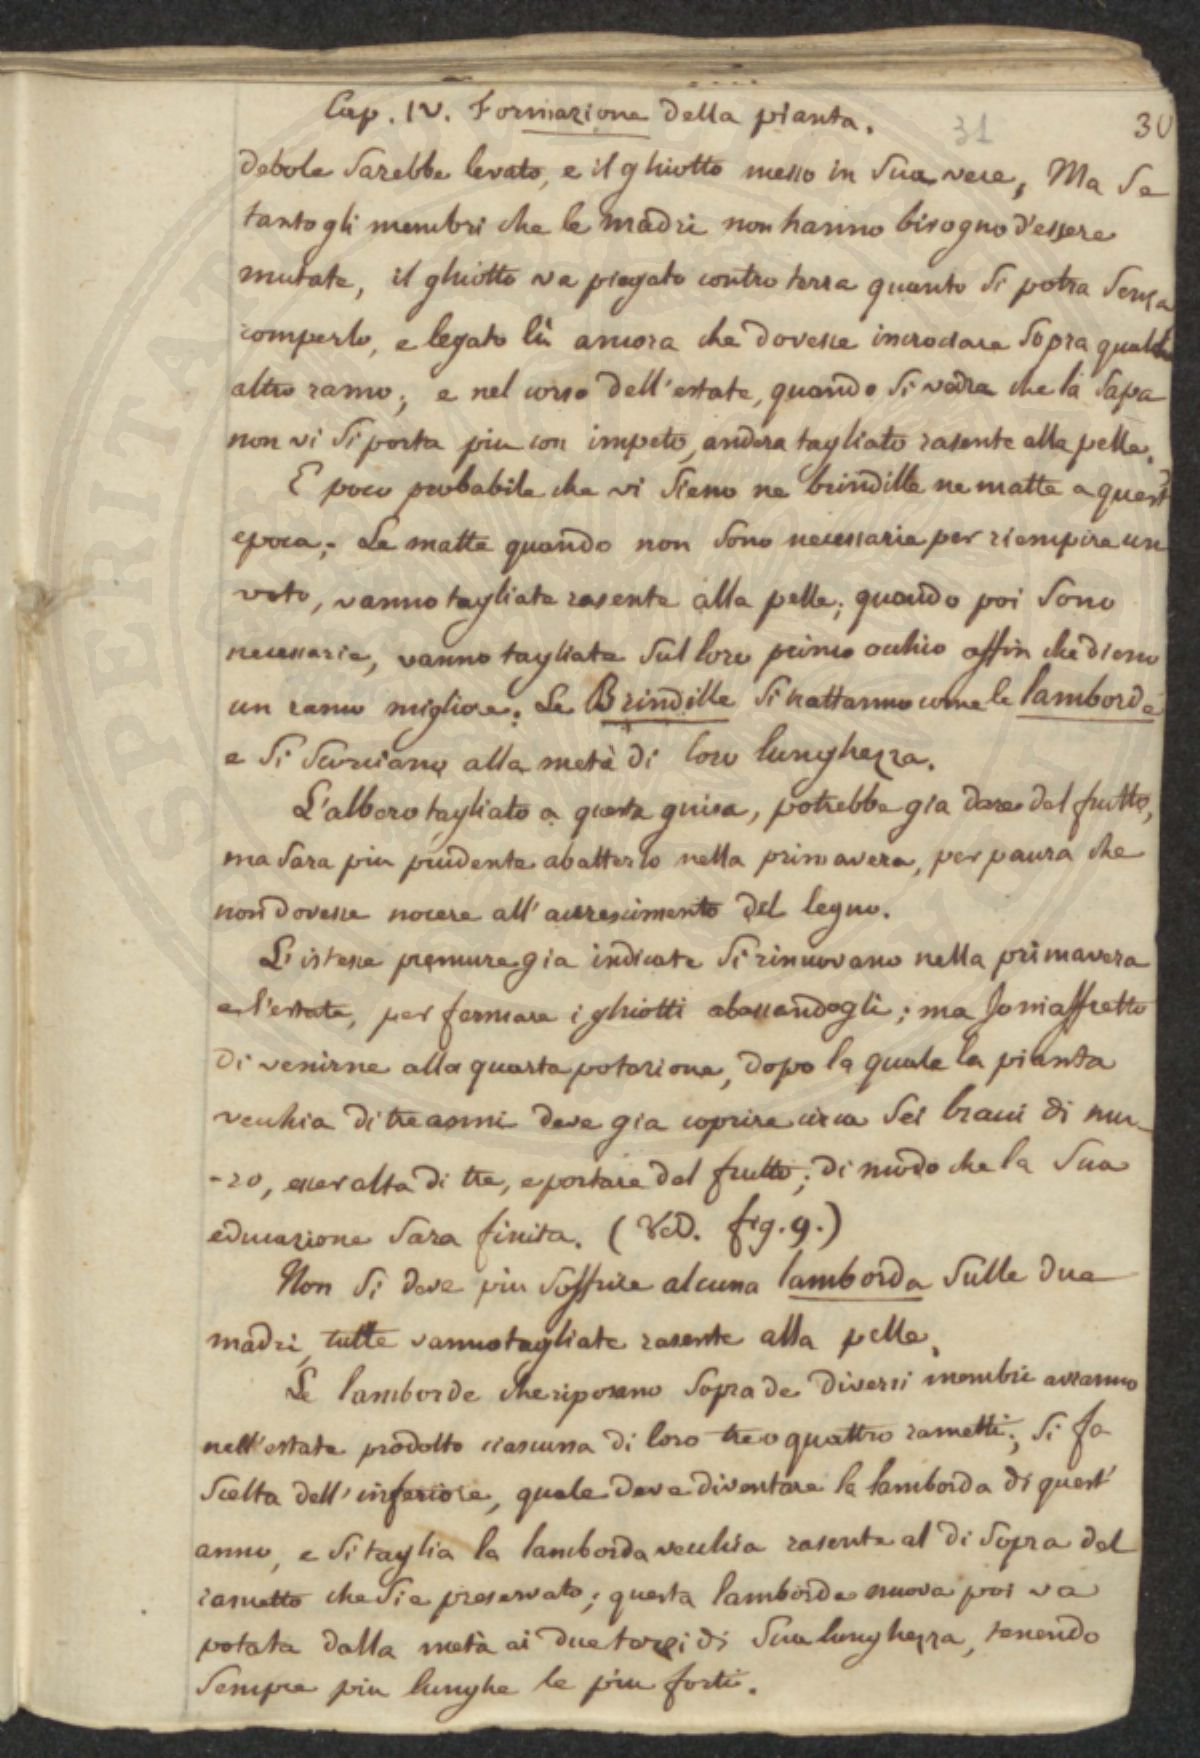 Cap. IV. Formazione della pianta.
31
30
debole sarebbe levato, e il ghiotto messo in sua vece, Ma se
tanto gli membri che le madri non hanno bisogno d'essere
mutate, il ghiotto va piegato contro terra quanto si potra senza
romperlo, e legato lì ancora che dovesse incrociare sopra qualche
altro ramo; e nel corso dell'estate, quando si vedra che la sapa
non vi si porta piu con impeto, andera tagliato rasente alla pelle.
E poco probabile che vi sieno ne brindille ne matte a quest'
epoca; Le matte quando non sono necessarie per riempire un
voto, vanno tagliate rasente alla pelle; quando poi sono
necessarie, vanno tagliate sul loro primo occhio affin che dieno
un ramo migliore. Le Brindille si trattanno come le lamborde
e si scorciano alla metà di loro lunghezza.
L'albero tagliato a questa guisa, potrebbe gia dare del frutto,
ma sara piu prudente abatterlo nella primavera, per paura che
non dovesse nocere all'accrescimento del legno.
L'istesse premure gia indicate si rinnovano nella primavera
e l'estate, per fermare i ghiotti abassandogli; ma Jo m'affretto
di venirne alla quarta potazione, dopo la quale la pianta
vecchia di tre anni deve gia coprire circa sei bracci di mu-
-ro, esser alta di tre, e portare del frutto; di modo che la sua
educazione sara finita. (Ved. fig. 9.)
Non si deve piu soffrire alcuna lamborda sulle due
madri, tutte vanno tagliate rasente alla pelle.
Le lamborde che riposano sopra de diversi membri avranno
nell'estate prodotto ciascuna di loro tre o quattro rametti; si fa
scelta dell'inferiore, quale deve diventare la lamborda di quest'
anno, e si taglia la lamborda vecchia rasente al di sopra del
rametto che si e preservato; questa lamborde nuova poi va
potata dalla metà ai due terzi di sua lunghezza, tenendo
sempre piu lunghe le piu forti.